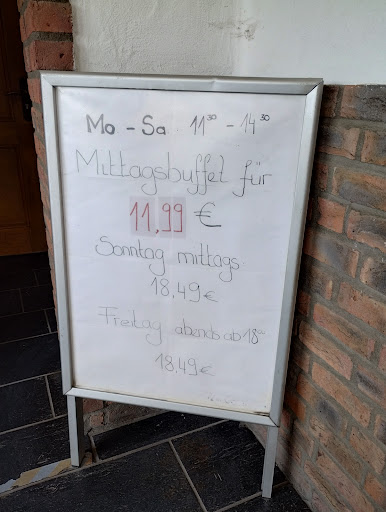 Mo - Sa 11³⁰ - 14³⁰
Mittagsbuffet für
11,99 €
Sonntag mittags
18,49 €
Freitag abends ab 18⁰⁰
18,49 €